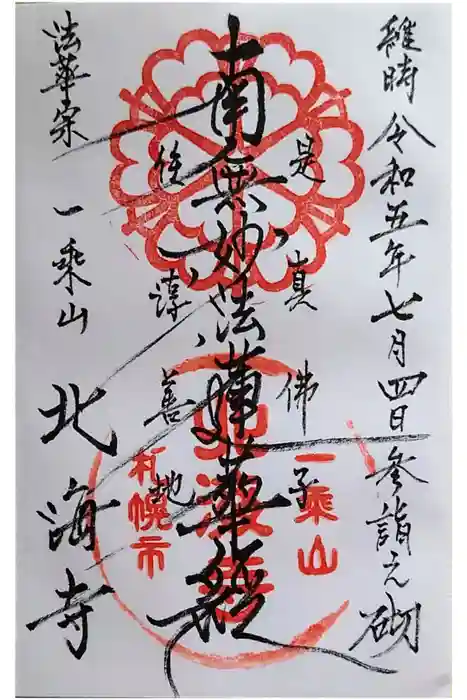 維時令和五年七月四日参詣之砌
是真佛子
南無妙法蓮華経
住淳善地
法華宗 一乗山 北海寺
一乗山
北海寺
札幌市